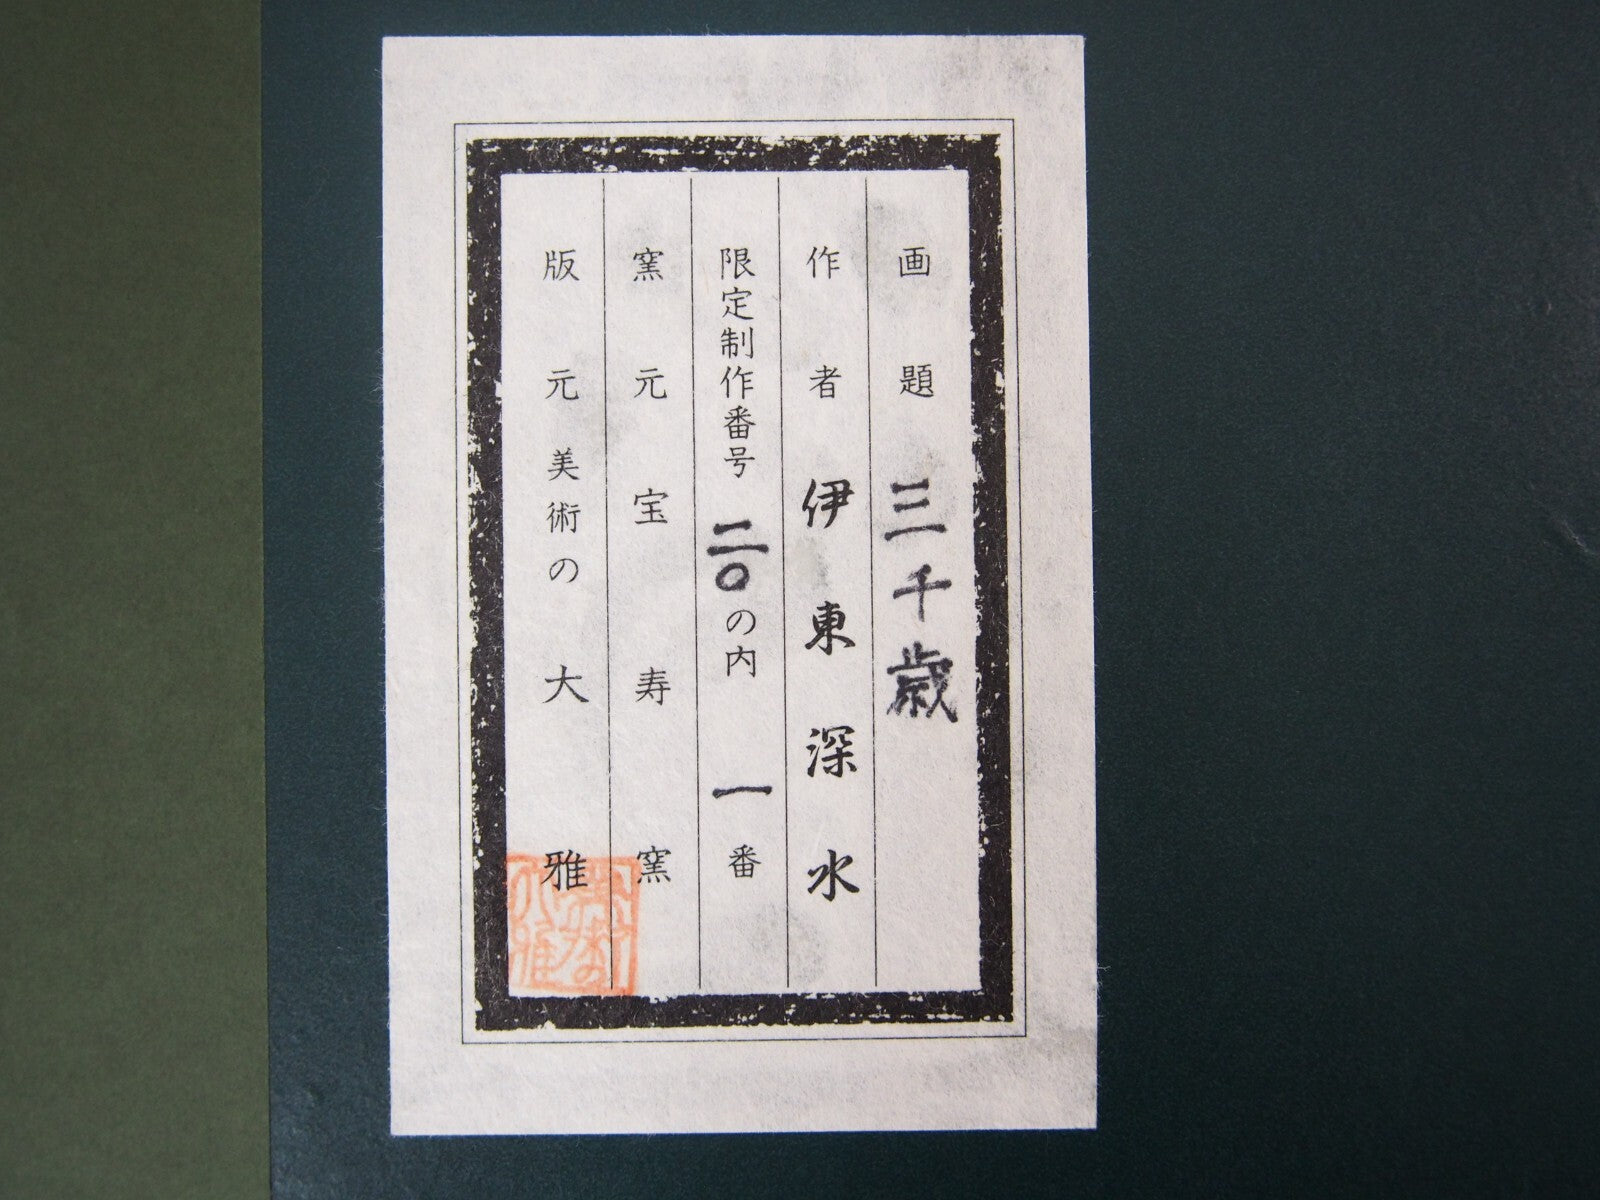 画題 三千歳
作者 伊東深水
限定制作番号 二〇の内 一番
窯元 宝寿窯
版元 美術の大雅
美術の
大雅